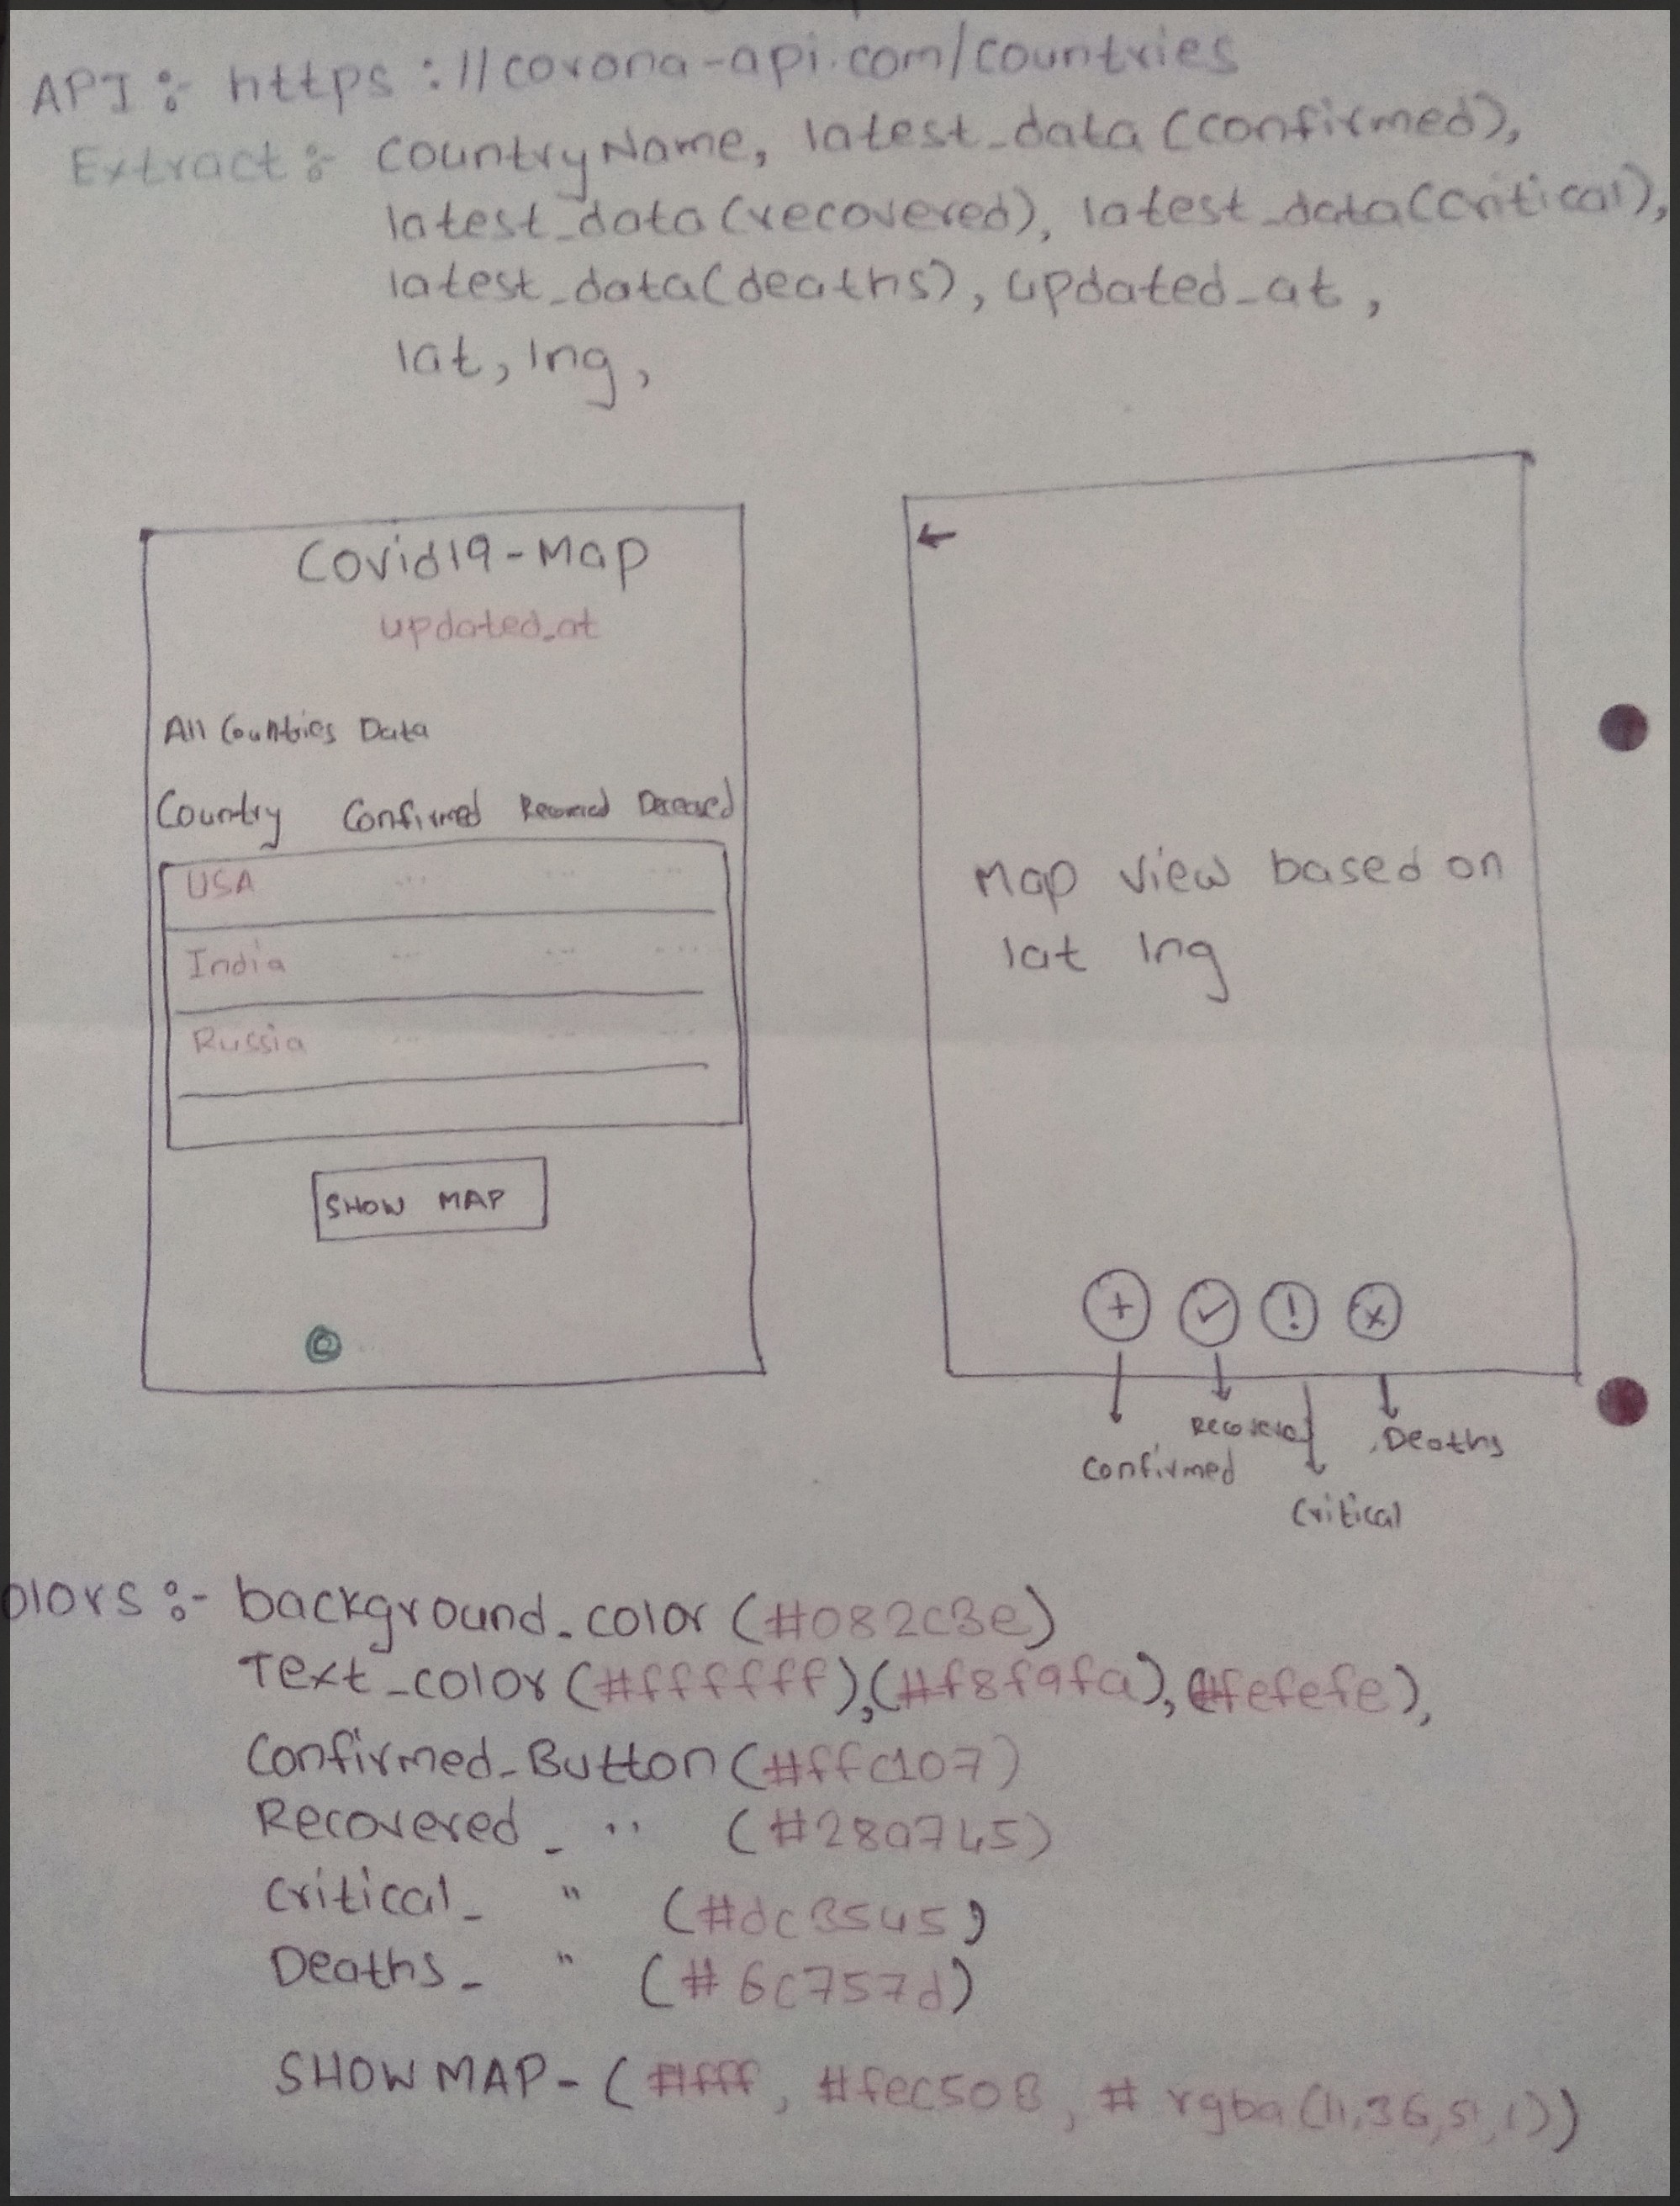 API :- https://corona-api.com/countries
Extract :- CountryName, latest_data (confirmed),
latest_data (recovered), latest_data(critical),
latest_data(deaths), updated_at,
lat, lng,
Covid19-Map
updated_at
All Countries Data
Country Confirmed Recovered Deceased
USA ... ... ...
India ... ... ....
Russia ... ... ...
SHOW MAP
©...
←
Map view based on
lat lng
+ ✓ ! x
Recovered
Deaths
Confirmed
Critical
olors :- background_color (#082c3e)
Text_color (#ffffff),(#f8f9fa),(#fefefe),
Confirmed_Button (#ffc107)
Recovered_ " (#28a745)
Critical_ " (#dc3545)
Deaths_ " (#6c757d)
SHOW MAP - (#fff, #fec503, # rgba(11,36,51,1))